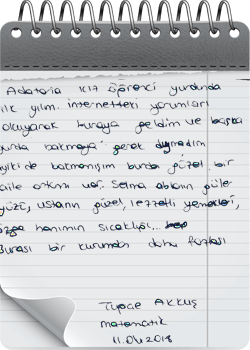 Adatoria Kız öğrenci yurdunda
ilk yılım. internetteki yorumları
okuyarak buraya geldim ve başka
yurda bakmaya gerek duymadım
iyiki de bakmamışım burda güzel bir
aile ortamı var. Selma ablanın güler
yüzü, ustanın güzel, lezzetli yemekleri,
özge hanımın sıcaklığı...
Burası bir kurumdan daha fazlası
Tuğçe AKKUŞ
matematik
11.04.2018